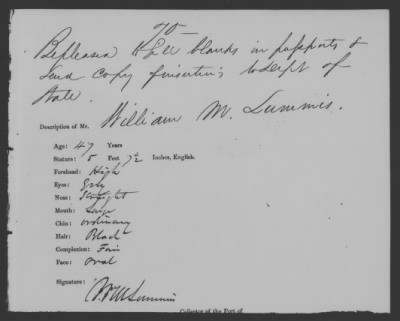 70
Be pleased to fill blanks in passports &
send copy of insertions to Dept of
State.
Description of Mr. William M. Lummis.
Age: 47 Years
Stature: 5 Feet 7½ Inches, English.
Forehead: High
Eyes: Grey
Nose: Straight
Mouth: Large
Chin: ordinary
Hair: Black
Complexion: Fair
Face: oval
Signature: Wm M Lummis
Collector of the Port of